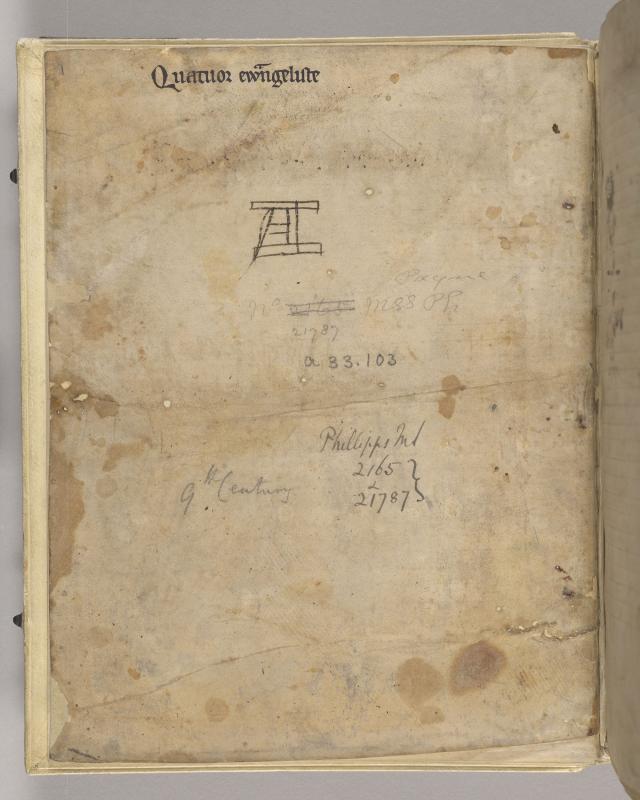 Quatuor ewāngeliste
No MSS Ph
21787
a 33.103
Phillipps MS
2165
&
21787
9th Century